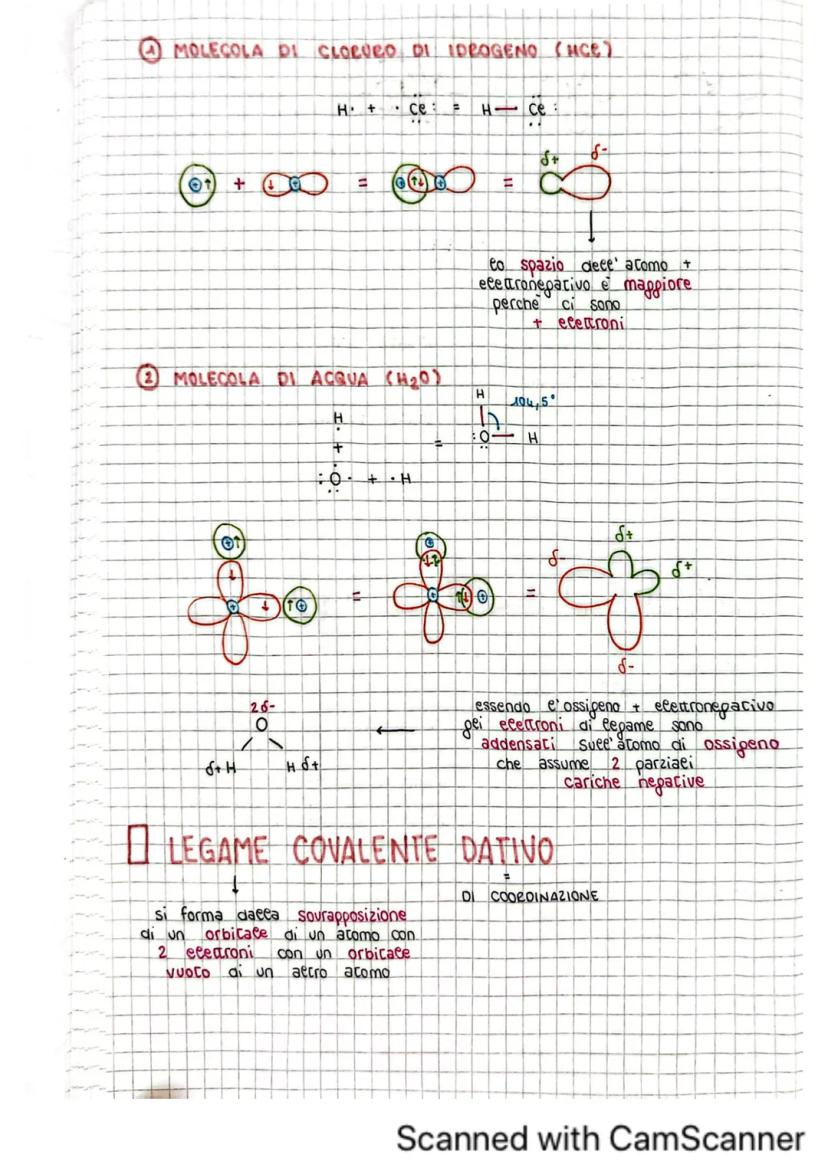 1 MOLECOLA DI CLORURO DI IDROGENO (HCl)
H· + ·Cl: = H — Cl:
+ = =
δ+ δ-
lo spazio dell'atomo +
elettronegativo è maggiore
perchè ci sono
+ elettroni
2 MOLECOLA DI ACQUA (H2O)
H
104,5°
H
+
= :O — H
:O· + ·H
δ+
δ-
δ+
= =
δ-
2δ-
O
δ+ H H δ+
essendo l'ossigeno + elettronegativo
gli elettroni di legame sono
addensati sull'atomo di ossigeno
che assume 2 parziali
cariche negative
LEGAME COVALENTE DATIVO
=
DI COORDINAZIONE
si forma dalla sovrapposizione
di un orbitale di un atomo con
2 elettroni con un orbitale
vuoto di un altro atomo
Scanned with CamScanner